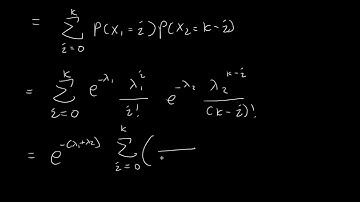 = \sum_{i=0}^{k} P(X_1=i) P(X_2=k-i)
= \sum_{i=0}^{k} e^{-\lambda_1} \frac{\lambda_1^i}{i!} e^{-\lambda_2} \frac{\lambda_2^{k-i}}{(k-i)!}
= e^{-(\lambda_1+\lambda_2)} \sum_{i=0}^{k} (